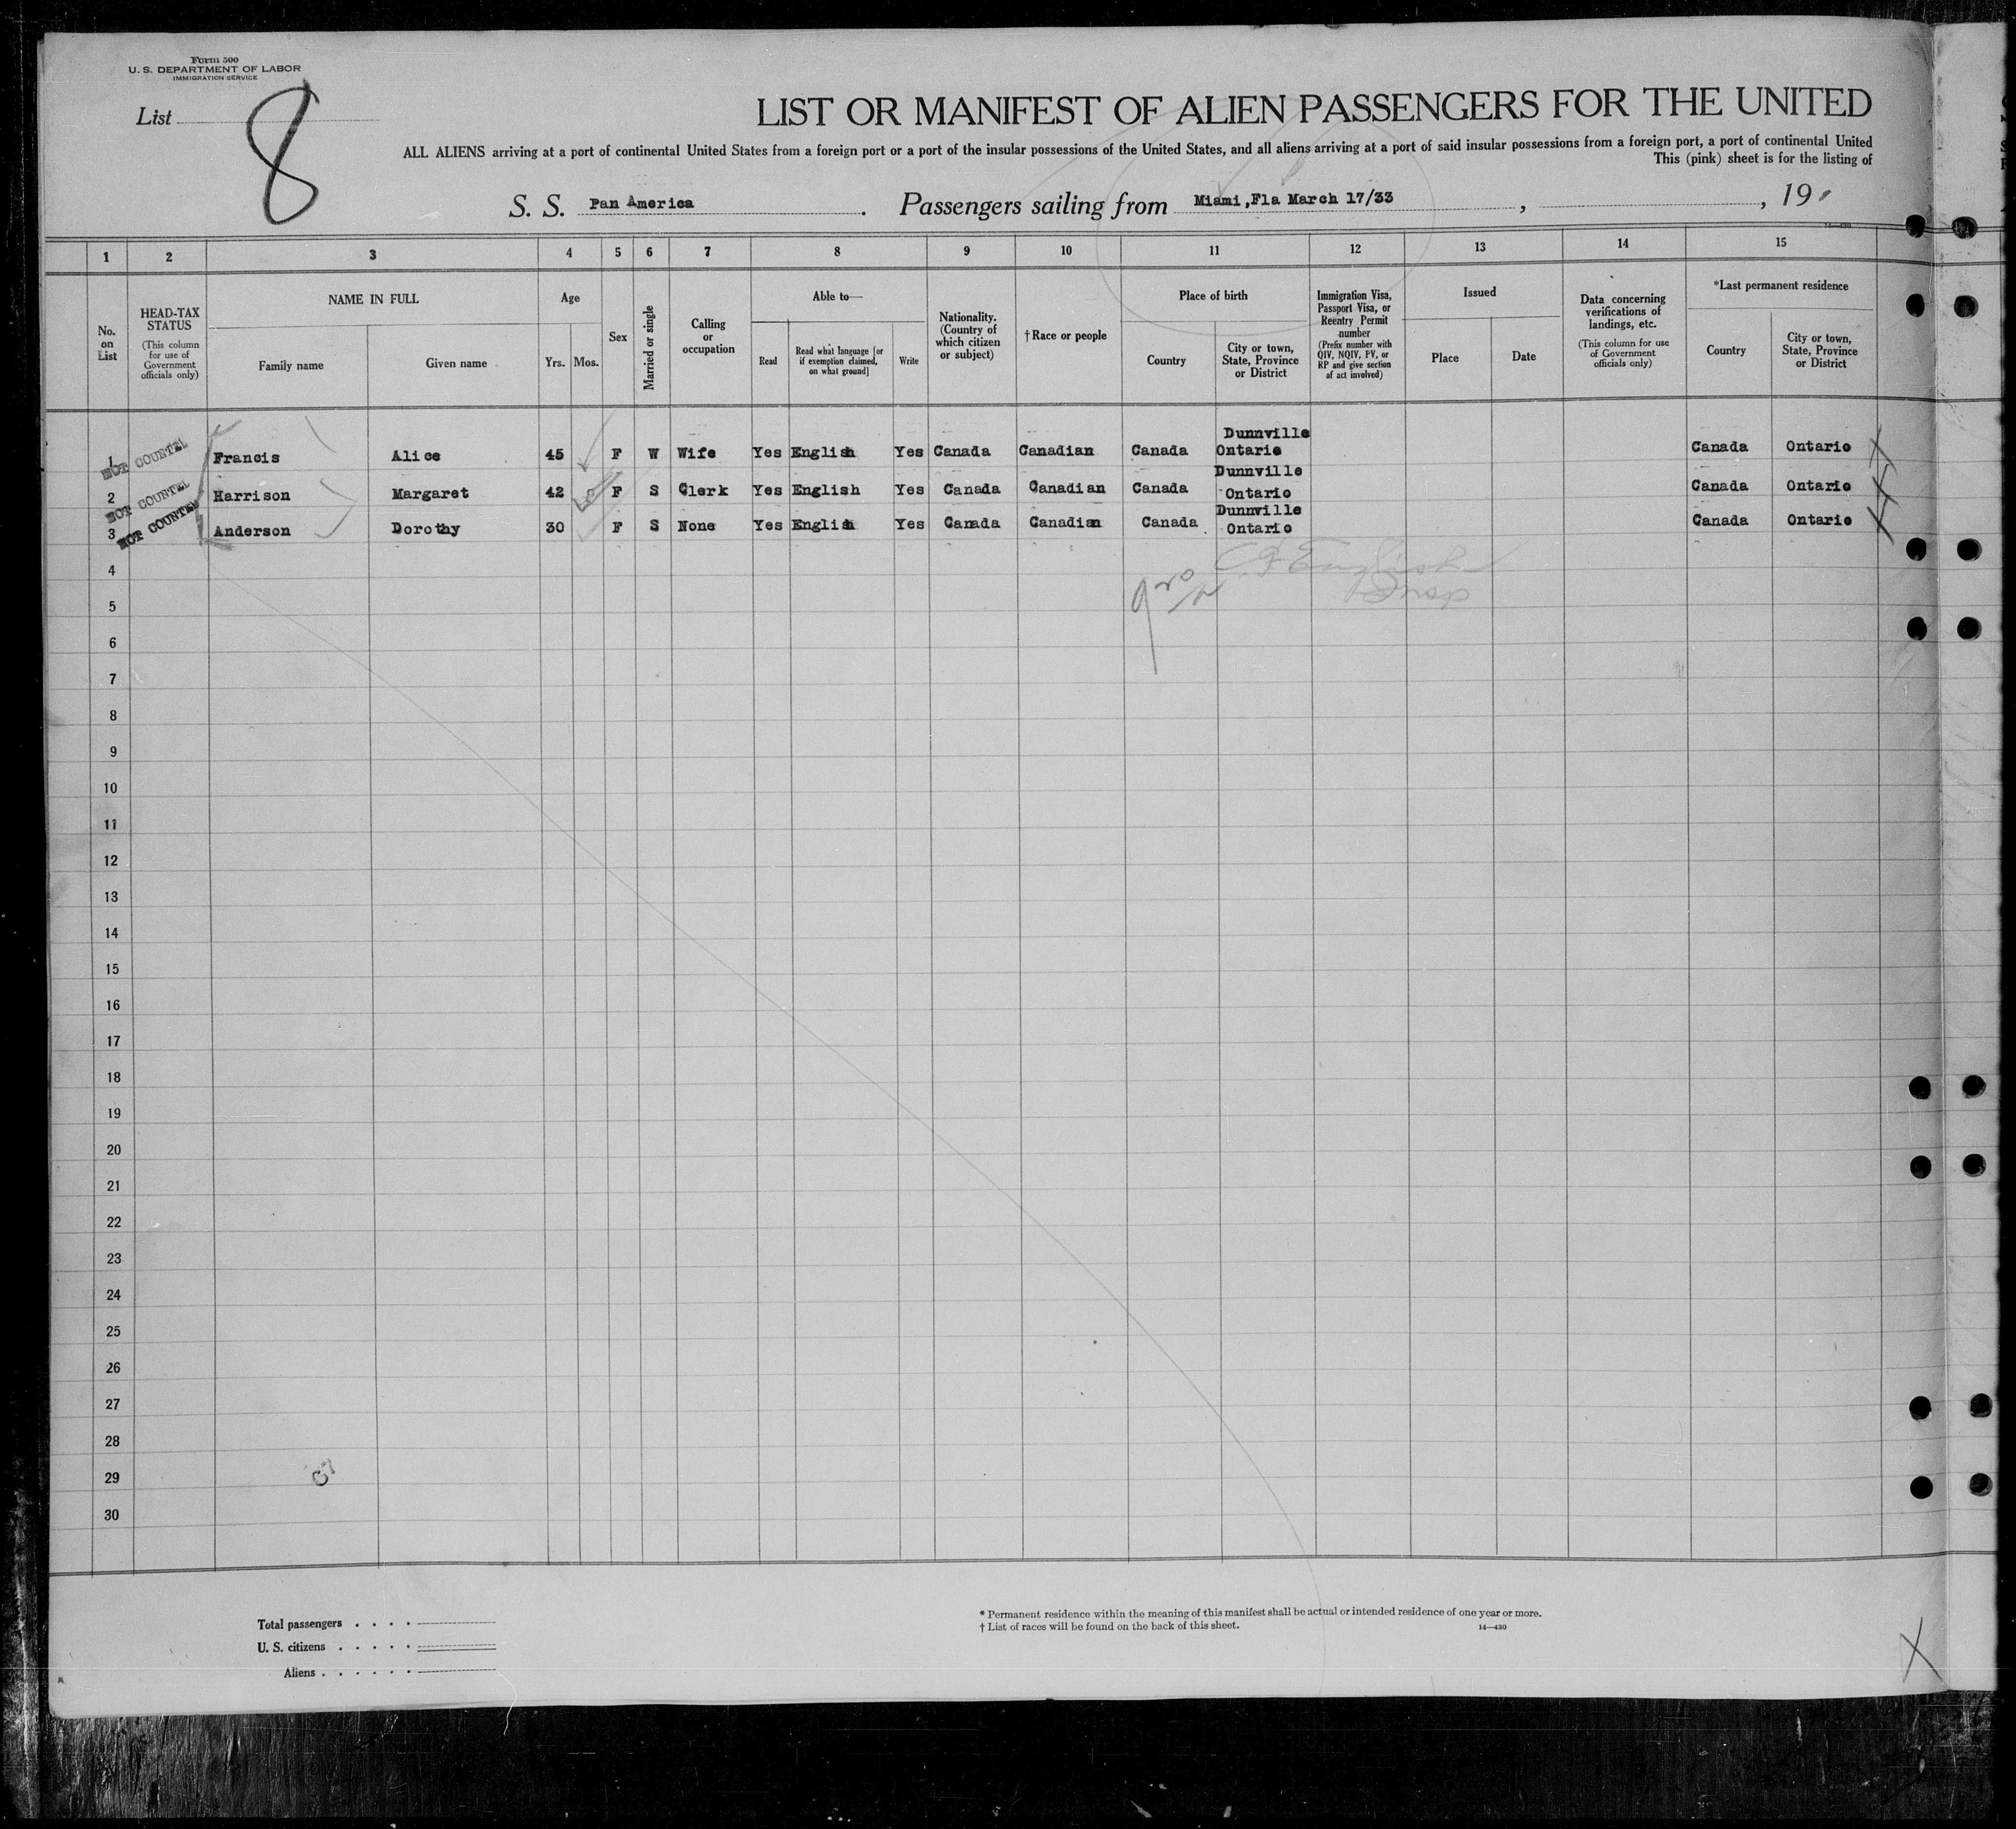 Form 500
U. S. DEPARTMENT OF LABOR
IMMIGRATION SERVICE
List 8
LIST OR MANIFEST OF ALIEN PASSENGERS FOR THE UNITED
ALL ALIENS arriving at a port of continental United States from a foreign port or a port of the insular possessions of the United States, and all aliens arriving at a port of said insular possessions from a foreign port, a port of continental United
This (pink) sheet is for the listing of
S. S. Pan America. Passengers sailing from Miami,Fla March 17/33, , 19
1 2 3 4 5 6 7 8 9 10 11 12 13 14 15
No. on List
HEAD-TAX STATUS
(This column for use of Government officials only)
NAME IN FULL
Family name
Given name
Age
Yrs. Mos.
Sex
Married or single
Calling or occupation
Able to—
Read
Read what language [or if exemption claimed, on what ground]
Write
Nationality. (Country of which citizen or subject)
† Race or people
Place of birth
Country
City or town, State, Province or District
Immigration Visa, Passport Visa, or Reentry Permit number
(Prefix number with QIV, NQIV, PV, or RP and give section of act involved)
Issued
Place
Date
Data concerning verifications of landings, etc.
(This column for use of Government officials only)
*Last permanent residence
Country
City or town, State, Province or District
Dunnville
1 NOT COUNTED Francis Alice 45 F W Wife Yes English Yes Canada Canadian Canada Ontario Canada Ontario
Dunnville
2 NOT COUNTED Harrison Margaret 42 F S Clerk Yes English Yes Canada Canadian Canada Ontario Canada Ontario
Dunnville
3 NOT COUNTED Anderson Dorothy 30 F S None Yes English Yes Canada Canadian Canada Ontario Canada Ontario
4
English
5
Insp
6
7
8
9
10
11
12
13
14
15
16
17
18
19
20
21
22
23
24
25
26
27
28
29
30
Total passengers . . . .
U. S. citizens . . . . .
Aliens . . . . . .
* Permanent residence within the meaning of this manifest shall be actual or intended residence of one year or more.
† List of races will be found on the back of this sheet.
14—430